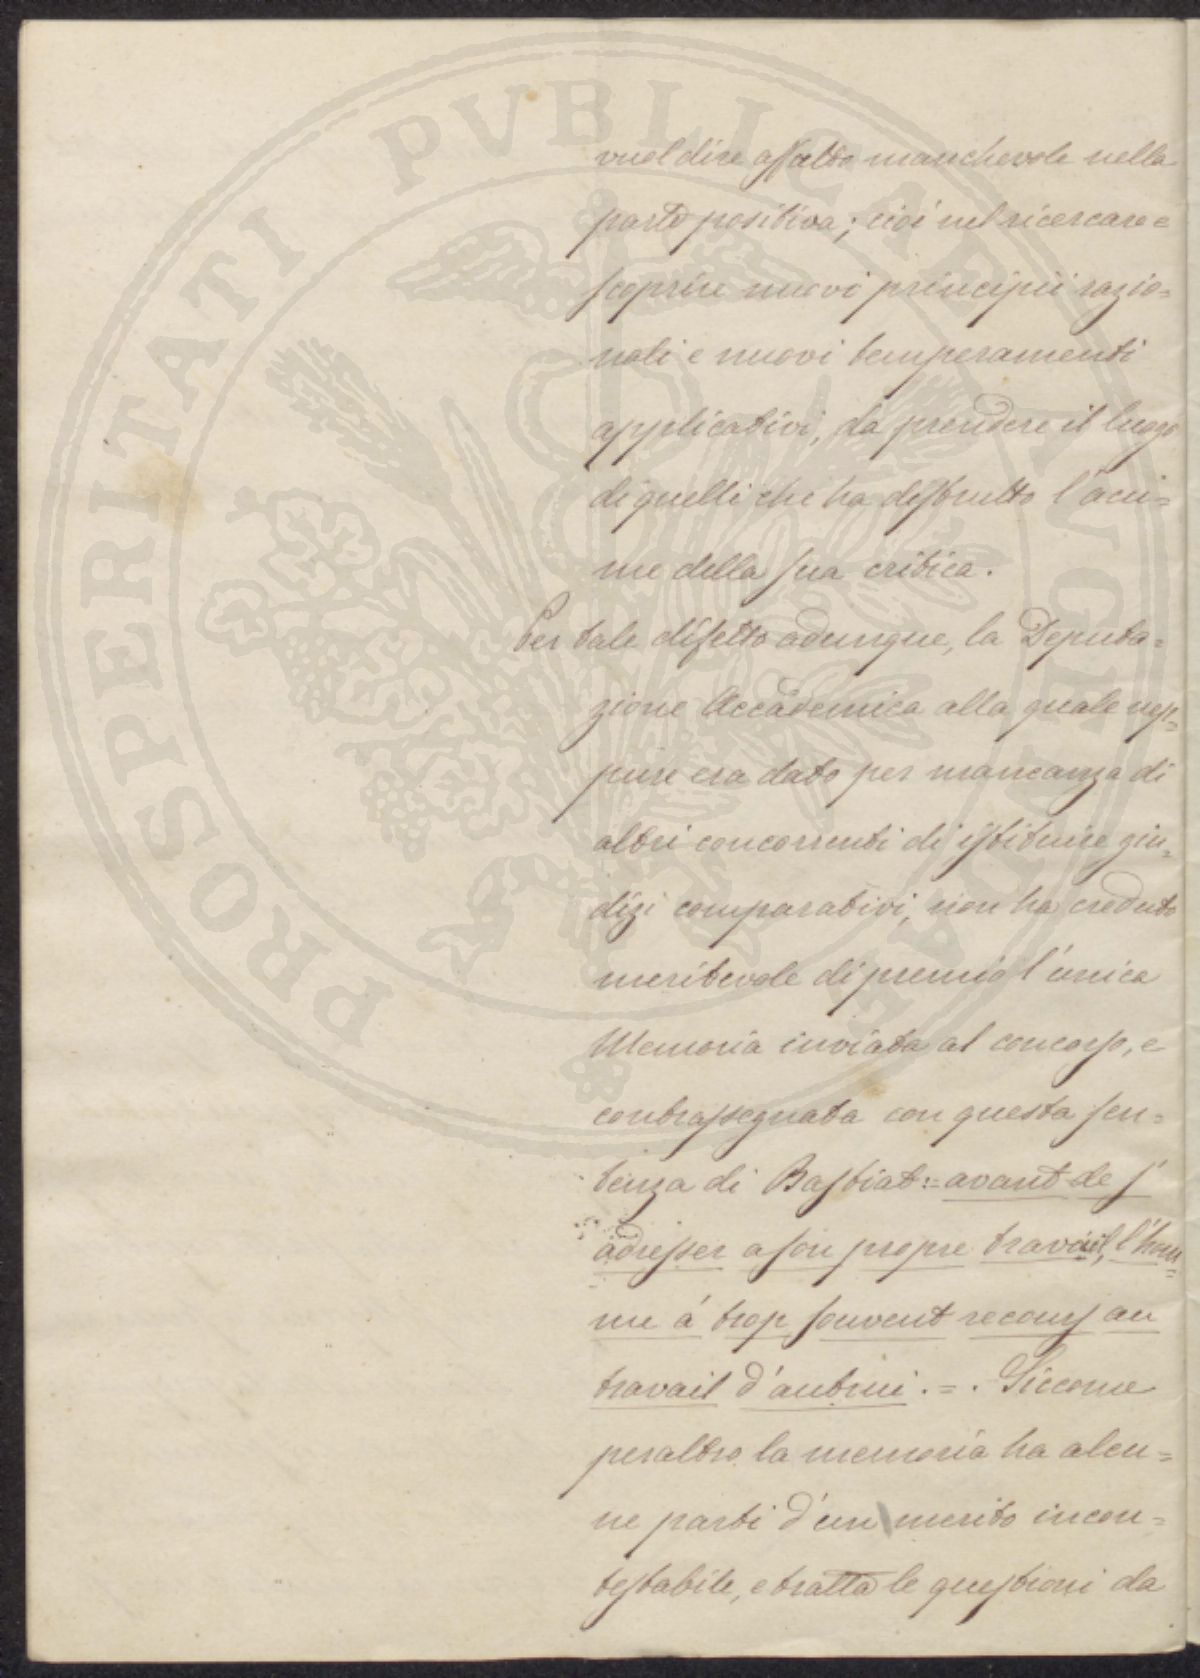 PROSPERITATI PVBLICAE AVGENDAE
vuol dire affatto manchevole nella
parte positiva; cioè nel ricercare e
scoprire nuovi principii razio=
nali e nuovi temperamenti
applicativi, da prendere il luogo
di quelli che ha distrutto l'acu=
me della sua critica.
Per tale difetto adunque, la Deputa=
zione Accademica alla quale nep=
pure era dato per mancanza di
altri concorrenti di istituire giu=
dizi comparativi, non ha creduto
meritevole di premio l'unica
Memoria inviata al concorso, e
contrassegnata con questa sen=
tenza di Bastiat:=avant de s'
adresser a son propre travail, l'hom=
me á trop souvent recours au
travail d'autrui.=. Siccome
peraltro la memoria ha alcu=
ne parti d'un merito incon=
testabile, e tratta le questioni da